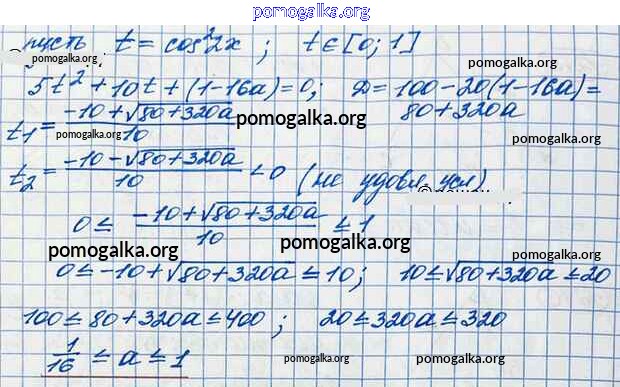 pomogalka.org
пусть t = cos²2x ; t ∈ [0; 1]
pomogalka.org pomogalka.org
5t² + 10t + (1-16a) = 0; D = 100 - 20(1-16a) =
80 + 320a
t₁ = (-10 + √(80+320a))/10
pomogalka.org pomogalka.org pomogalka.org
t₂ = (-10 - √(80+320a))/10 < 0 (не удовл. усл)
pomogalka.org
0 ≤ (-10 + √(80+320a))/10 ≤ 1
pomogalka.org pomogalka.org pomogalka.org
0 ≤ -10 + √(80+320a) ≤ 10; 10 ≤ √(80+320a) ≤ 20
pomogalka.org pomogalka.org
100 ≤ 80 + 320a ≤ 400 ; 20 ≤ 320a ≤ 320
1/16 ≤ a ≤ 1
pomogalka.org pomogalka.org pomogalka.org